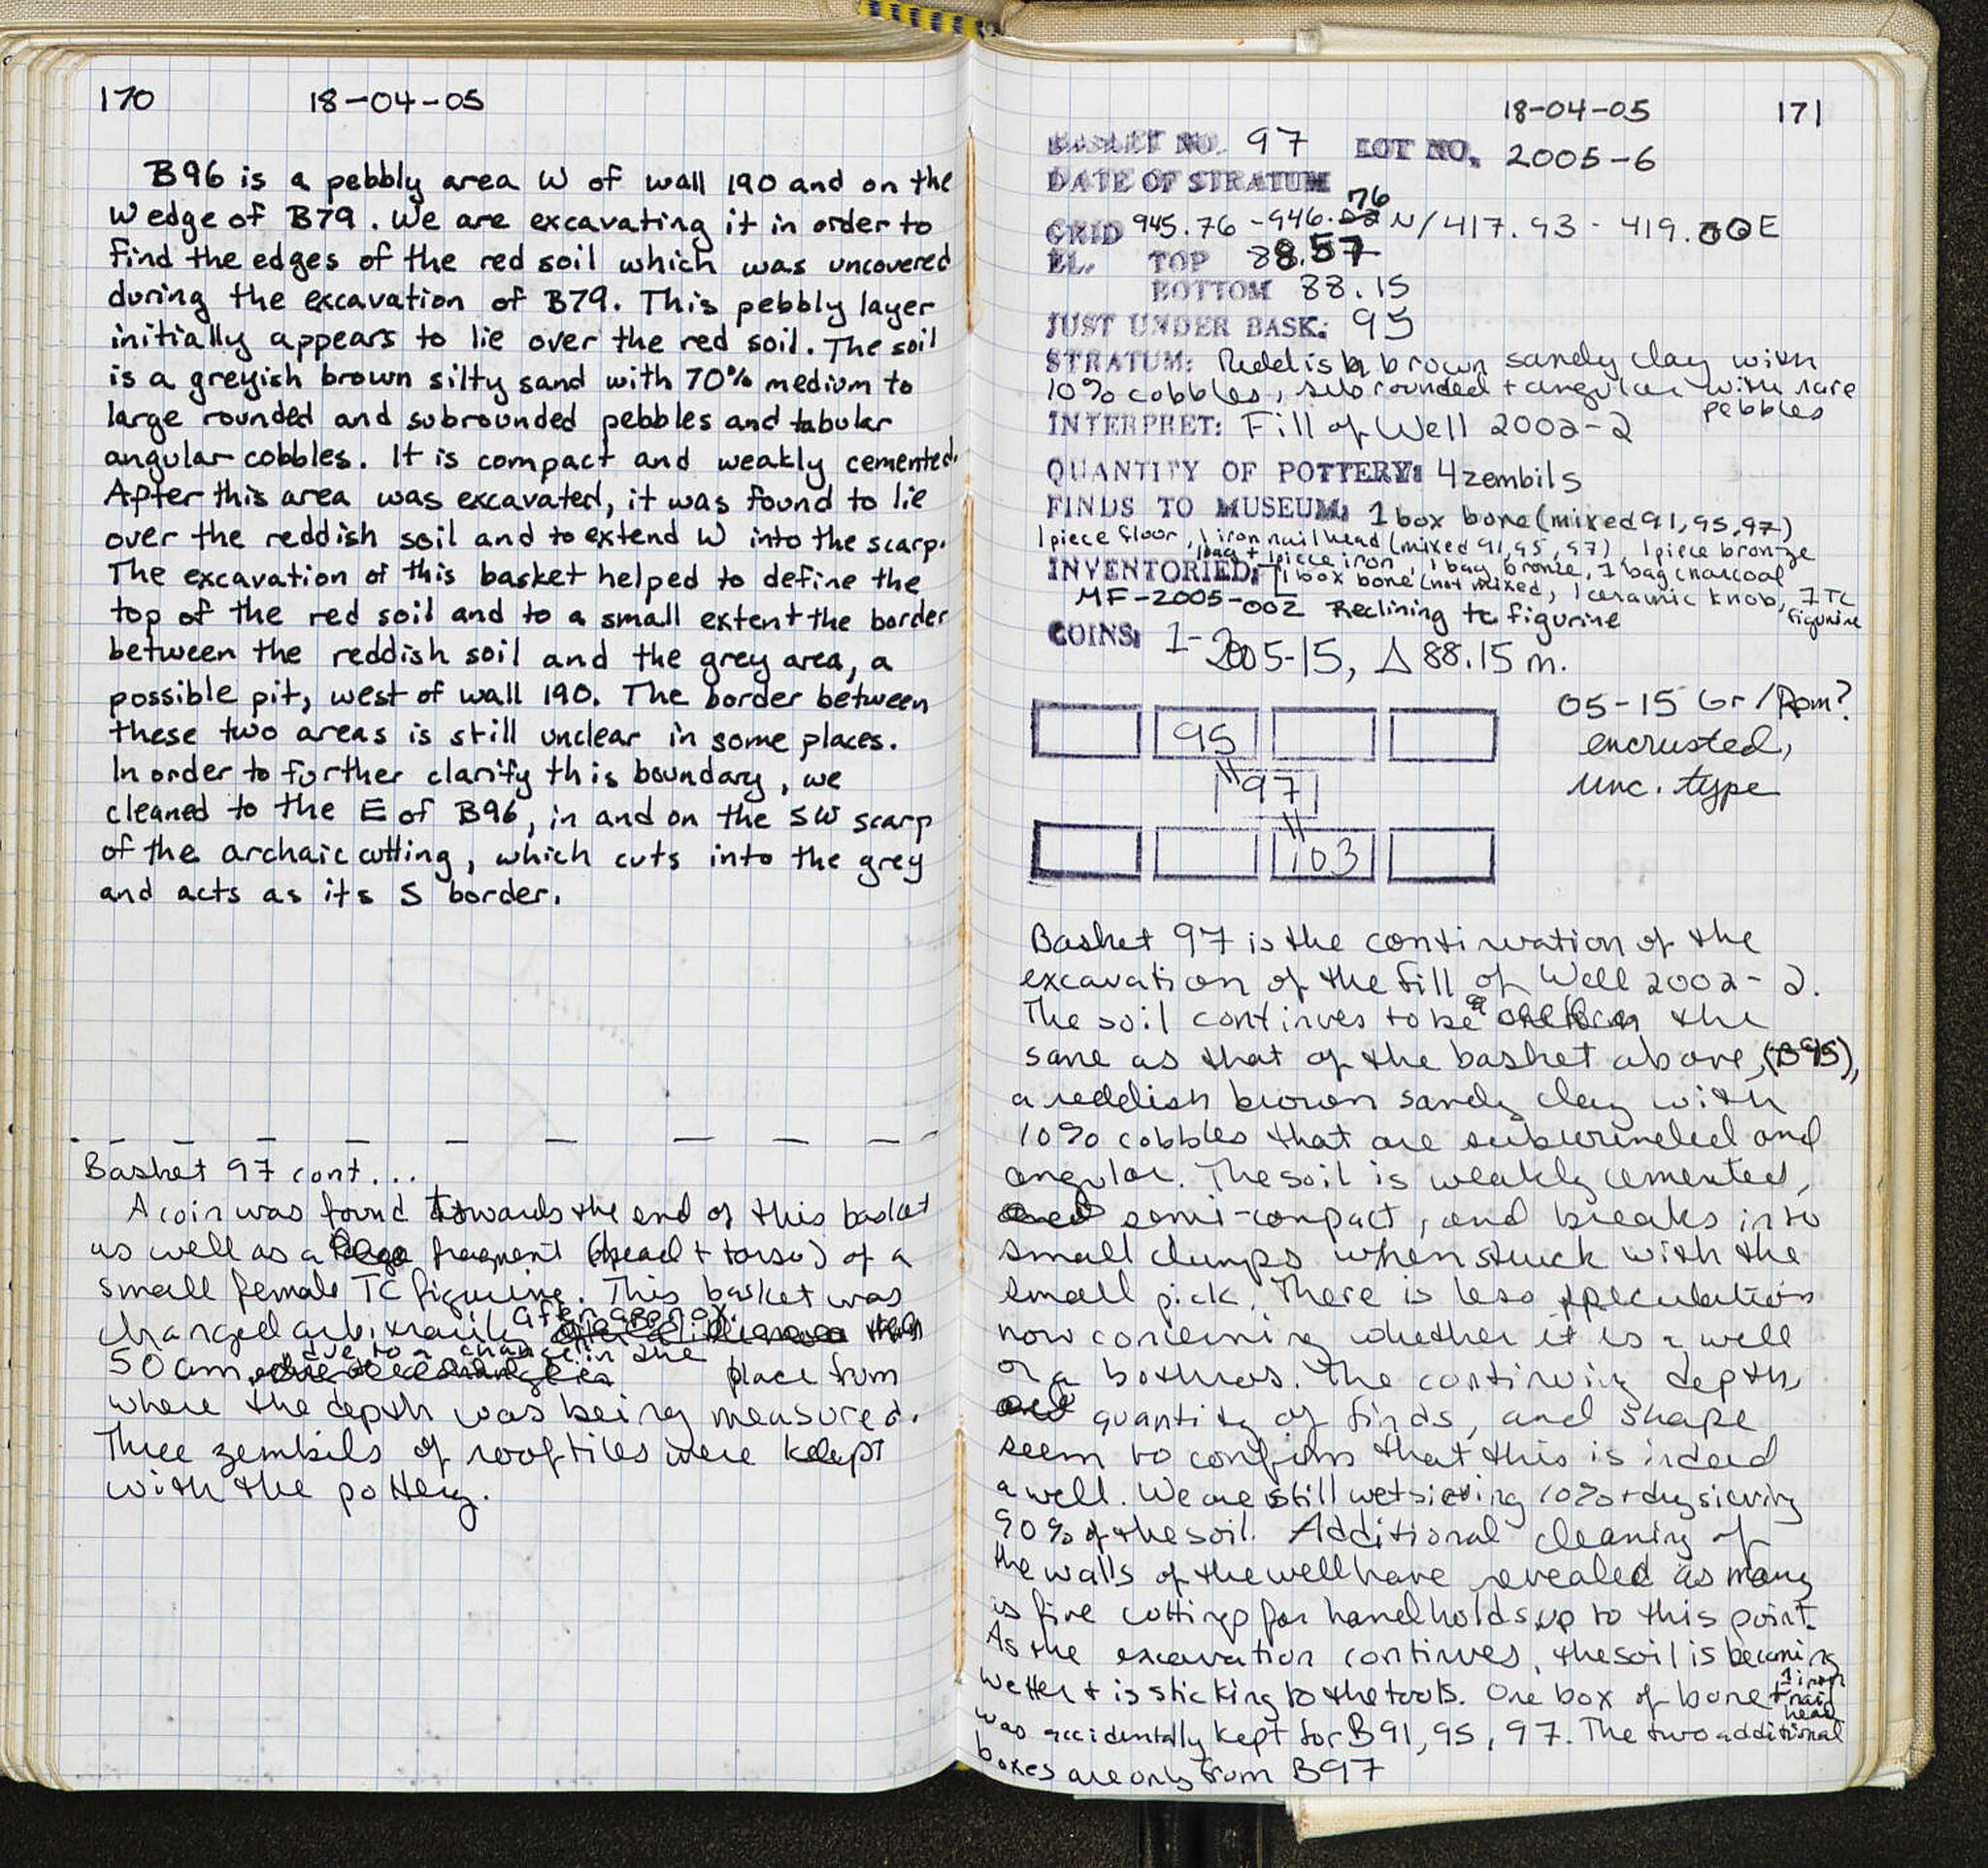 170 18-04-05
B96 is a pebbly area W of wall 190 and on the
W edge of B79. We are excavating it in order to
find the edges of the red soil which was uncovered
during the excavation of B79. This pebbly layer
initially appears to lie over the red soil. The soil
is a greyish brown silty sand with 70% medium to
large rounded and subrounded pebbles and tabular
angular cobbles. It is compact and weakly cemented.
After this area was excavated, it was found to lie
over the reddish soil and to extend W into the scarp.
The excavation of this basket helped to define the
top of the red soil and to a small extent the border
between the reddish soil and the grey area, a
possible pit, west of wall 190. The border between
these two areas is still unclear in some places.
In order to further clarify this boundary, we
cleaned to the E of B96, in and on the SW scarp
of the archaic cutting, which cuts into the grey
and acts as its S border.
Basket 97 cont...
A coin was found towards the end of this basket
as well as a fragment (head + torso) of a
small female TC figurine. This basket was
changed arbitrarily after approx.
50 cm due to a change in the place from
where the depth was being measured.
Three zembils of rooftiles were kept
with the pottery.
18-04-05 171
BASKET NO. 97 LOT NO. 2005-6
DATE OF STRATUM
GRID 945.76-946.76 N/417.93-419.00E
EL. TOP 88.57
BOTTOM 88.15
JUST UNDER BASK: 95
STRATUM: Reddish brown sandy clay with
10% cobbles, subrounded + angular with rare
pebbles
INTERPRET: Fill of Well 2002-2
QUANTITY OF POTTERY: 4 zembils
FINDS TO MUSEUM: 1 box bone (mixed 91,95,97)
1 piece floor, 1 iron nail head (mixed 91,95,97), 1 piece bronze
1 bag + 1 piece iron, 1 bag bronze, 1 bag charcoal
INVENTORIED: 1 box bone (not mixed), 1 ceramic knob, 1 TC
figurine
MF-2005-002 Reclining tc figurine
COINS: 1- 2005-15, △ 88.15 m.
05-15 Gr/Rom?
encrusted,
unc. type
95
97
103
Basket 97 is the continuation of the
excavation of the fill of Well 2002-2.
The soil continues to be the
same as that of the basket above, (B95),
a reddish brown sandy clay with
10% cobbles that are subrounded and
angular. The soil is weakly cemented,
semi-compact, and breaks into
small clumps when stuck with the
small pick. There is less speculation
now concerning whether it is a well
or a bothros. The continuing depth,
quantity of finds, and shape
seem to confirm that this is indeed
a well. We are still wetsieving 10% + drysieving
90% of the soil. Additional cleaning of
the walls of the well have revealed as many
is five cuttings for handholds up to this point.
As the excavation continues, the soil is becoming
wetter + is sticking to the tools. One box of bone + 1 iron nail head
was accidentally kept for B91, 95, 97. The two additional
boxes are only from B97